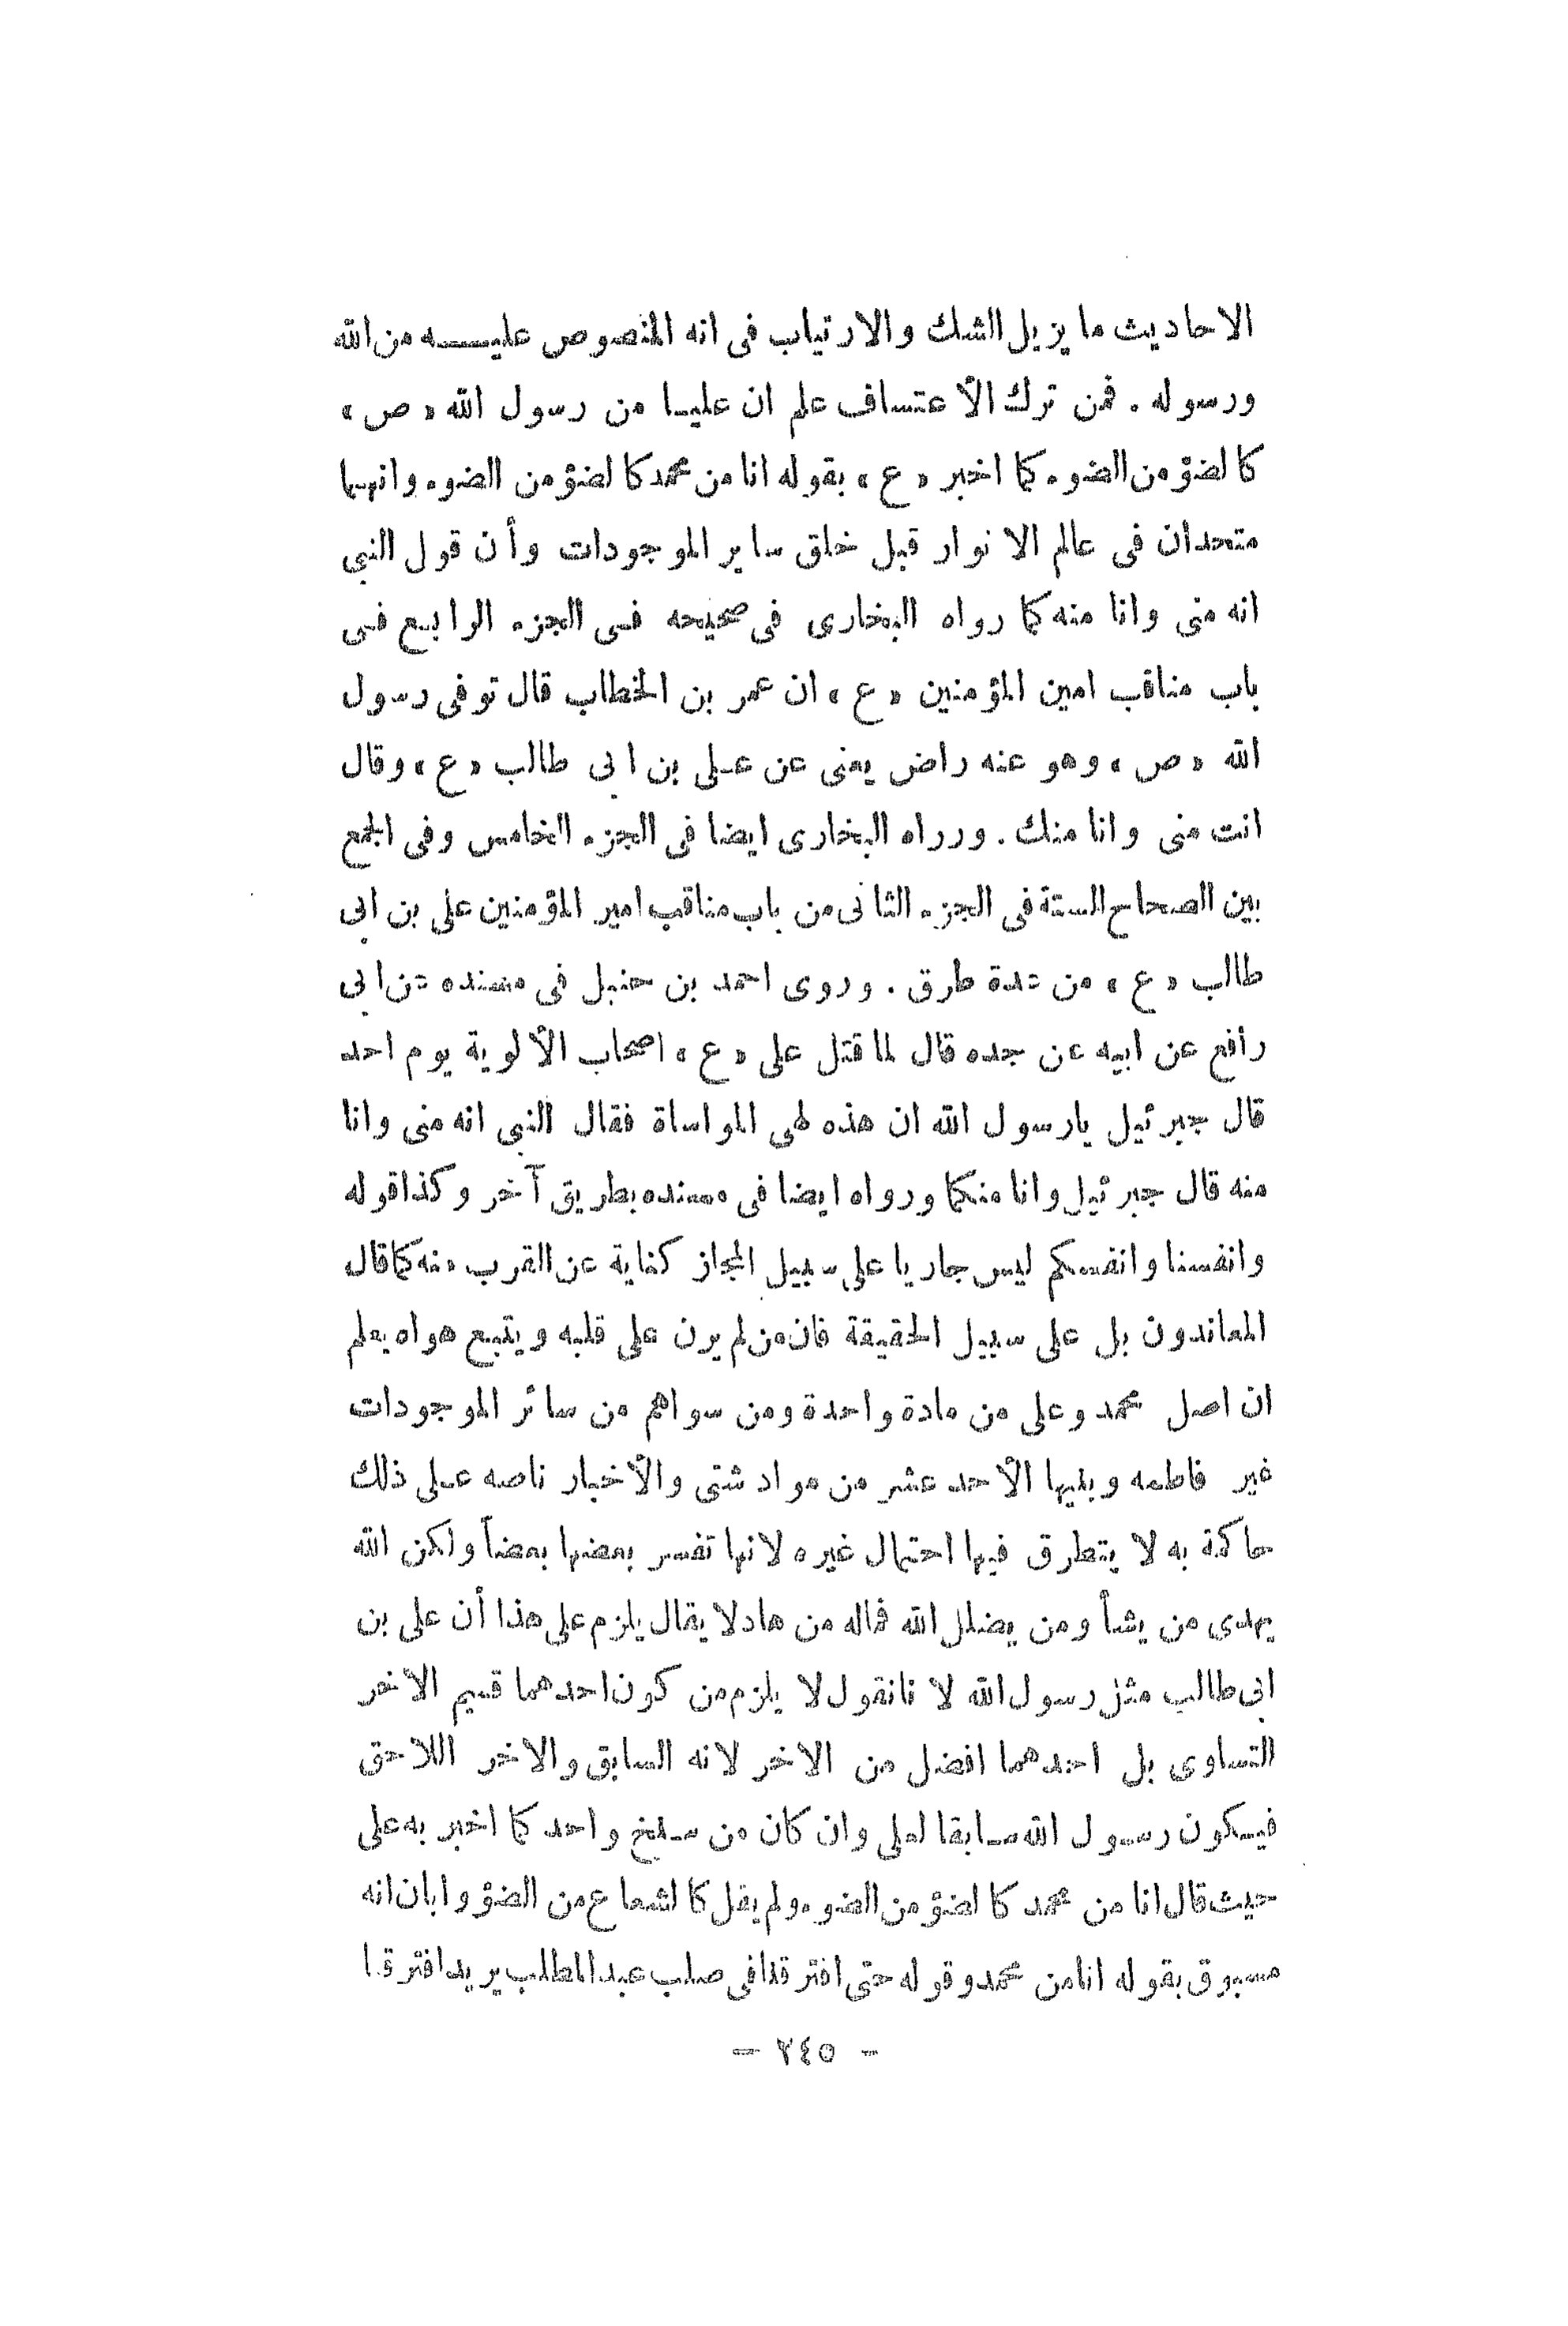 الاحاديث ما يزيل الشك والارتياب فى انه المنصوص عليـــه من الله
ورسوله . فمن ترك الأعتساف علم ان عليـا من رسول الله « ص »
كالضؤ من الضوء كما اخبر « ع » بقوله انا من محمد كالضؤ من الضوء وانهـما
متحدان فى عالم الانوار قبل خلق ساير الموجودات وأن قول النبي
انه منى وانا منه كما رواه البخارى فى صحيحه فـى الجزء الرابـع فـى
باب مناقب امين المؤمنين « ع » ان عمر بن الخطاب قال توفى رسول
الله « ص » وهو عنه راض يعنى عن عـلى بن ابى طالب « ع » وقال
انت منى وانا منك . ورراه البخارى ايضا فى الجزء الخامس وفى الجمع
بين الصحاح الستة فى الجزء الثانى من باب مناقب امير المؤمنين على بن ابى
طالب « ع » من عدة طرق . وروى احمد بن حنبل فى مسنده عن ابى
رافع عن ابيه عن جده قال لما قتل على « ع » اصحاب الألوية يوم احد
قال جبرئيل يارسول الله ان هذه لهى المواساة فقال النبي انه منى وانا
منه قال جبرئيل وانا منكما ورواه ايضا فى مسنده بطريق آخر وكذا قوله
وانفسنا وانفسكم ليس جاريا على سبيل المجاز كناية عن القرب منه كما قال
المعاندون بل على سبيل الحقيقة فان من لم يرن على قلبه ويتبع هواه يعلم
ان اصل محمد وعلى من مادة واحدة ومن سواهم من سائر الموجودات
غير فاطمه وبنيها الأحد عشر من مواد شتى والأخبار ناصه عـلى ذلك
حاكمة به لا يتطرق فيها احتمال غيره لانها تفسر بعضها بعضاً ولكن الله
يهدى من يشأ ومن يضلل الله فماله من هاد لا يقال يلزم على هذا أن على بن
ابى طالب مثل رسول الله لا نانقول لا يلزم من كون احدهما قسيم الاخر
التساوى بل احدهما افضل من الاخر لانه السابق والاخر اللاحق
فيـكون رسـول الله سـابقا لعلى وان كان من سـنخ واحد كما اخبر به على
حيث قال انا من محمد كالضؤ من الضوء ولم يقل كالشعاع من الضؤ وابان انه
مسبوق بقوله انا من محمد وقوله حتى افترقنا فى صلب عبد المطلب يريد افترقـا
- ٢٤٥ -